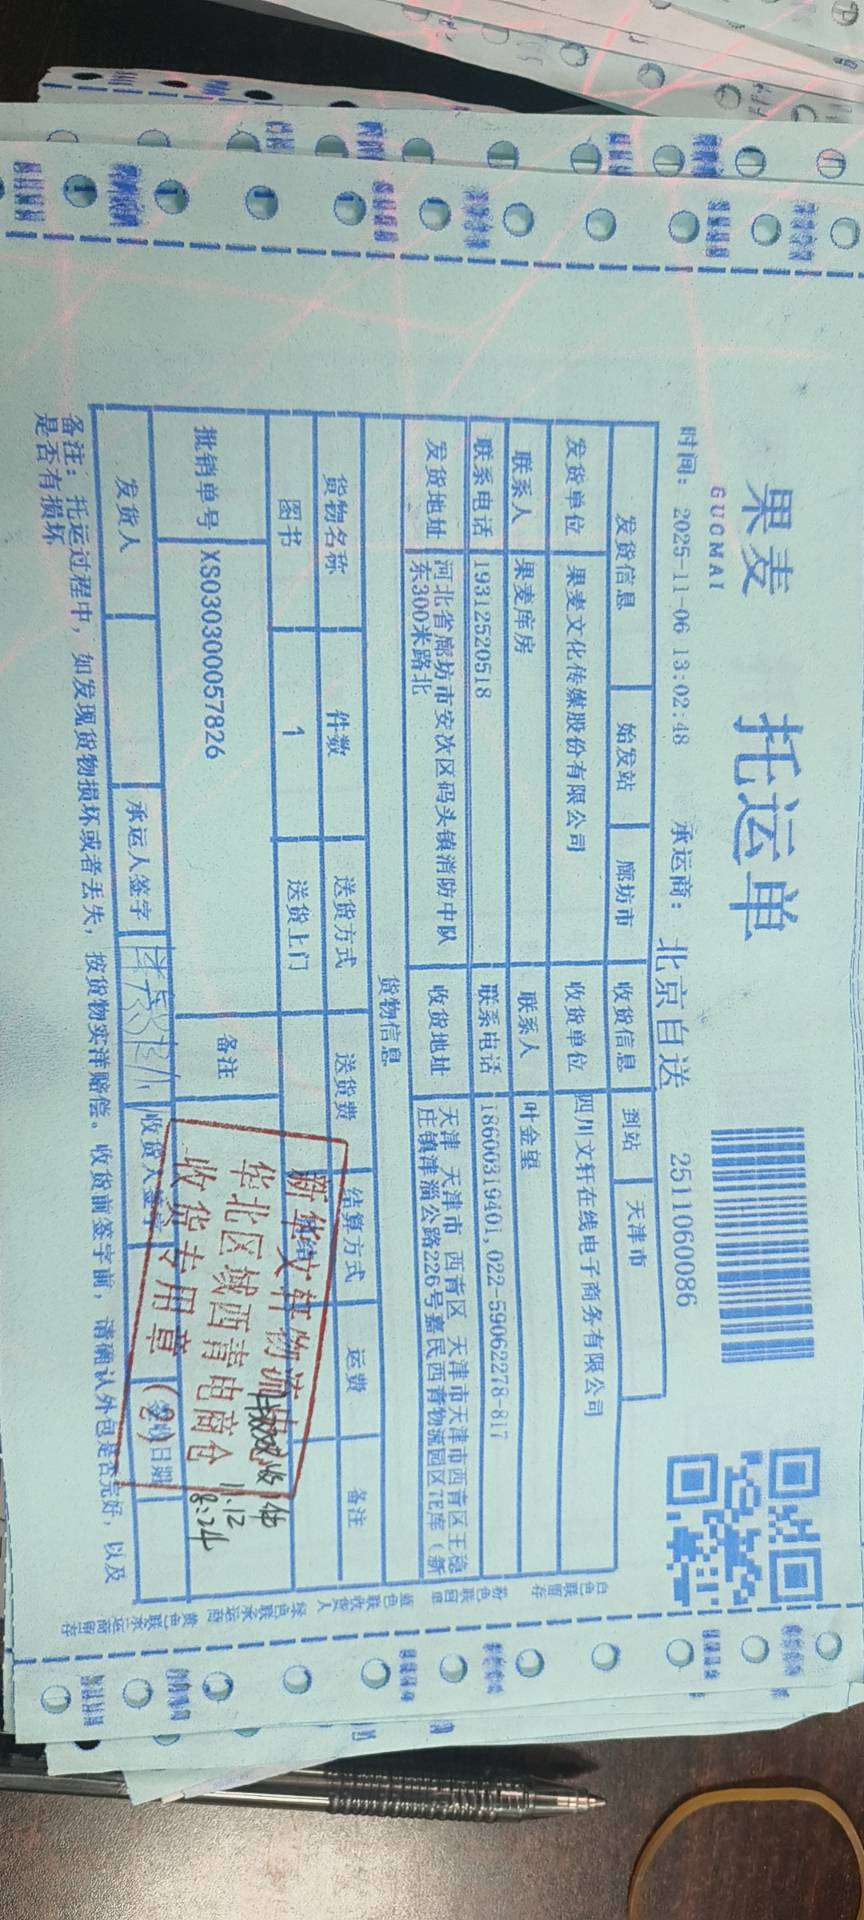 果麦 托运单
GUOMAI
时间: 2025-11-06 13:02:48 承运商: 北京自送 2511060086
发货信息 始发站 廊坊市 收货信息 到站 天津市
发货单位 果麦文化传媒股份有限公司 收货单位 四川文轩在线电子商务有限公司
联系人 果麦库房 联系人 叶金星
联系电话 19312520518 联系电话 18600319401,022-59062278-817
发货地址 河北省廊坊市安次区码头镇消防中队东300米路北 收货地址 天津 天津市 西青区 天津市天津市西青区王稳庄镇津淄公路226号嘉民西青物流园区 库(新
货物信息
货物名称 件数 送货方式 送货费 结算方式 运费 备注
图书 1 送货上门
批销单号 XS030300057826 备注
新华文轩物流
华北区域西青电商仓
收货专用章
(2)
11.12
8:24
发货人 承运人签字 收货人签字 日期
备注: 托运过程中, 如发现货物损坏或者丢失, 按货物实洋赔偿。收货前签字前, 请确认外包是否完好, 以及
是否有损坏
白色联留存 粉色联回单 蓝色联收货人 绿色联承运商 黄色联承运商留存